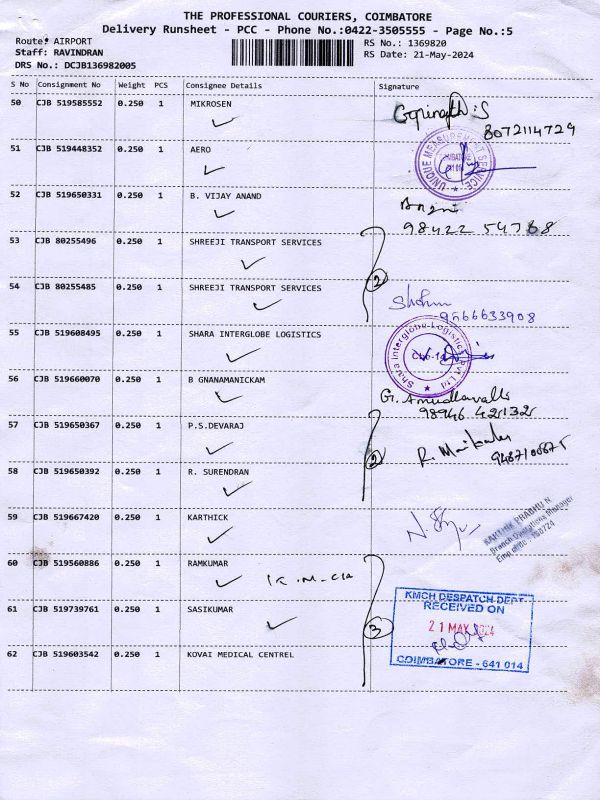 THE PROFESSIONAL COURIERS, COIMBATORE
Delivery Runsheet - PCC - Phone No.:0422-3505555 - Page No.:5
Route: AIRPORT
Staff: RAVINDRAN
DRS No.: DCJB136982005
RS No.: 1369820
RS Date: 21-May-2024
S No Consignment No Weight PCS Consignee Details Signature
50 CJB 519585552 0.250 1 MIKROSEN
Gopinath.S
8072114729
51 CJB 519448352 0.250 1 AERO
UNIQUE MEASUREMENT SERVICE
52 CJB 519650331 0.250 1 B. VIJAY ANAND
98422 54768
53 CJB 80255496 0.250 1 SHREEJI TRANSPORT SERVICES
2
54 CJB 80255485 0.250 1 SHREEJI TRANSPORT SERVICES
9566633908
55 CJB 519608495 0.250 1 SHARA INTERGLOBE LOGISTICS
Shara Interglobe Logistics Pvt Ltd
56 CJB 519660070 0.250 1 B GNANAMANICKAM
G. Amudhavalli
98946 42132
57 CJB 519650367 0.250 1 P.S.DEVARAJ
2
58 CJB 519650392 0.250 1 R. SURENDRAN
59 CJB 519667420 0.250 1 KARTHICK
KARTHIK PRABHU N
Branch Operations Manager
60 CJB 519560886 0.250 1 RAMKUMAR
61 CJB 519739761 0.250 1 SASIKUMAR
3
KMCH DESPATCH DEPT.
RECEIVED ON
21 MAY 2024
COIMBATORE - 641 014
62 CJB 519603542 0.250 1 KOVAI MEDICAL CENTREL